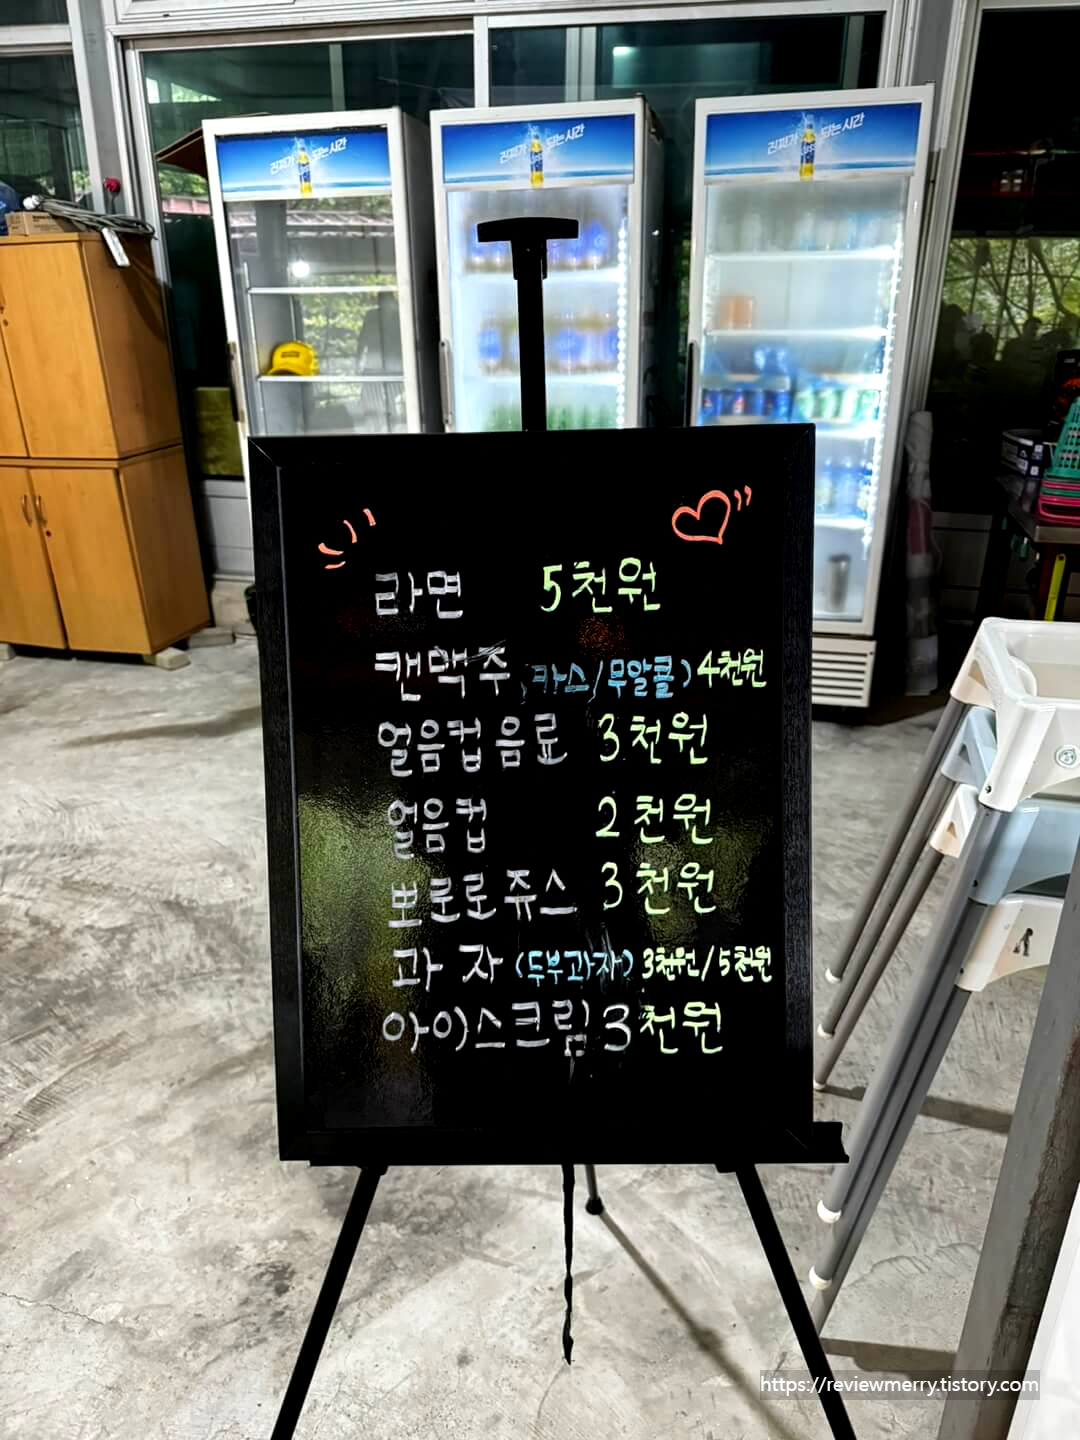 진짜가 되는 시간
진짜가 되는 시간
진짜가 되는 시간
라면 5천원
캔맥주 (카스/무알콜) 4천원
얼음컵 음료 3천원
얼음컵 2천원
뽀로로쥬스 3천원
과자 (두부과자) 3천원/5천원
아이스크림 3천원
https://reviewmerry.tistory.com